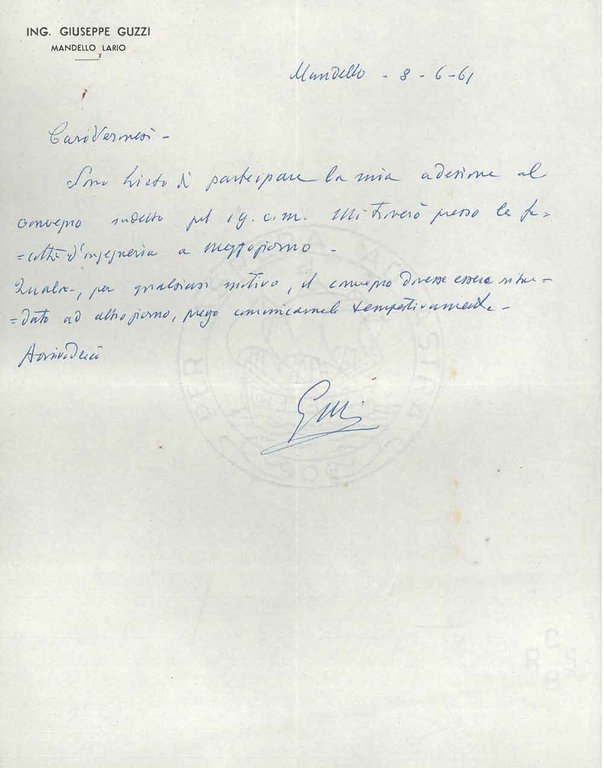 ING. GIUSEPPE GUZZI
MANDELLO LARIO
Mandello - 8 - 6 - 61
Caro Veronesi -
Sono lieto di partecipare la mia adesione al
convegno indetto pel 19. c. m. Mi troverò presso la fa-
=coltà d'ingegneria a mezzogiorno -
Qualora, per qualsiasi motivo, il convegno dovesse essere riman-
=dato ad altro giorno, prego comunicarmelo tempestivamente -
Arrivederci
Guzzi
PER
C
R S
B